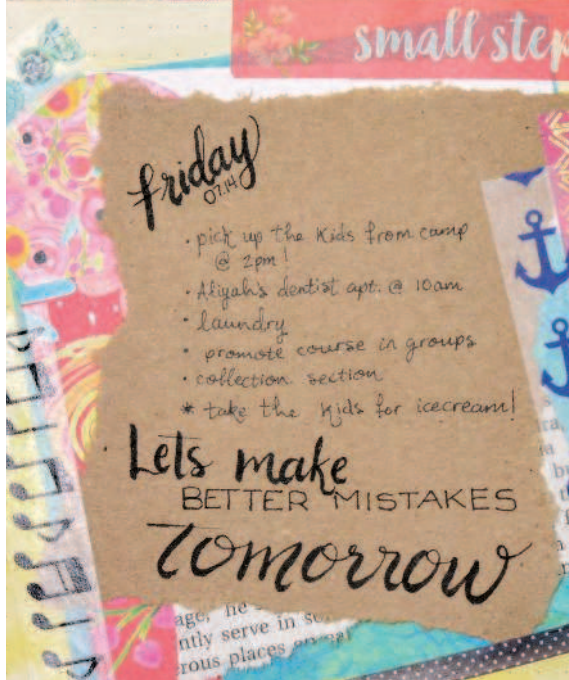 small step
friday
07.14
• pick up the kids from camp
@ 2pm!
• Aliyah's dentist apt. @ 10am
• laundry
• promote course in groups
• collection section
* take the kids for icecream!
Lets make
BETTER MISTAKES
Tomorrow
age, he
ntly serve in
rous places